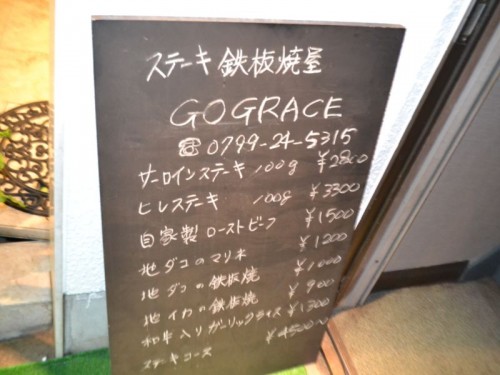 ステーキ 鉄板焼屋
GOGRACE
☎0799-24-5315
サーロインステーキ 100g ¥2800
ヒレステーキ 100g ¥3300
自家製ローストビーフ ¥1500
地ダコのマリネ ¥1200
地ダコの鉄板焼 ¥1000
地イカの鉄板焼 ¥900
和牛入りガーリックライス ¥1300
ステーキコース ¥4500〜